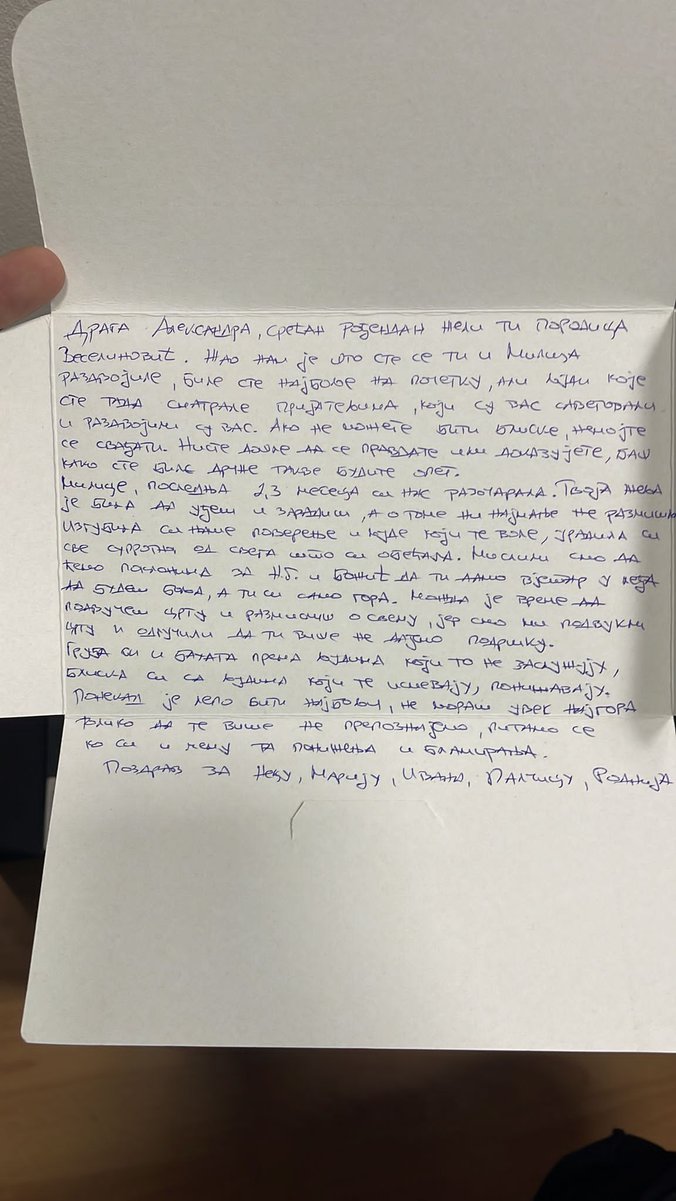 Драга Александра, срећан рођендан жели ти породица
Веселиновић. Жао нам је што сте се ти и Милица
раздвојиле, биле сте најбоље на почетку, али људи које
сте тада сматрале пријатељима, који су вас саветовали
и раздвојили су вас. Ако не можете бити блиске, немојте
се свађати. Нисте дошле да се правдате или доказујете, баш
како сте биле дужне такве будите опет.
Милице, последња 2,3 месеца си нас разочарала. Твоја жеља
је била да уђеш и зарадиш, а о томе ни најмање не размишљ
Изгубила си наше поверење и људе који те воле, урадила си
све супротно од свега што си обећала. Мислили смо да
ћемо поклонима за Н.Г. и Божић да ти дамо ветар у леђа
да будеш боља, а ти си само гора. Можда је време да
подвучеш црту и размислиш о свему, јер смо ми подвукли
црту и одлучили да ти више не дајемо подршку.
Груба си и бахата према људима који то не заслужују,
блиска си са људима који те исмевају, понижавају.
Понекад је лепо бити најбољи, не мораш увек најгора
толико да те више не препознајемо, питамо се
ко си и чему та понижења и бламирања.
Поздрав за Нецу, Марију, Ивана, Палчицу, Роднија